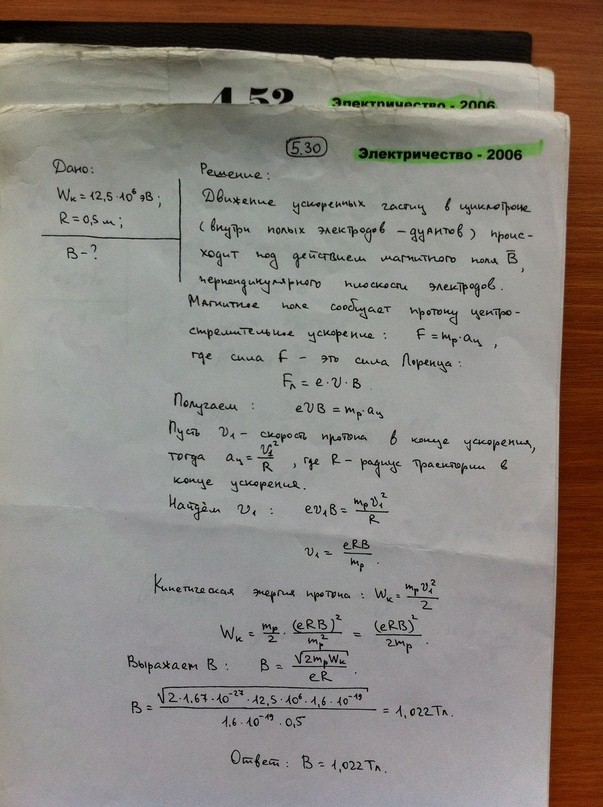 4.52
Электричество - 2006
5.30
Электричество - 2006
Дано:
Wк = 12,5·10⁶ эВ;
R = 0,5 м;
B - ?
Решение:
Движение ускоренных частиц в циклотроне
(внутри полых электродов – дуантов) проис-
ходит под действием магнитного поля B̄,
перпендикулярного плоскости электродов.
Магнитное поле сообщает протону центро-
стремительное ускорение: F = mₚ·aц,
где сила F - это сила Лоренца:
Fл = e·υ·B
Получаем: eυB = mₚ·aц
Пусть υ₁ - скорость протона в конце ускорения,
тогда aц = υ₁²/R, где R - радиус траектории в
конце ускорения.
Найдём υ₁: eυ₁B = mₚυ₁²/R
υ₁ = eRB/mₚ.
Кинетическая энергия протона: Wк = mₚυ₁²/2
Wк = mₚ/2 · (eRB)²/mₚ² = (eRB)²/2mₚ.
Выражаем B: B = √(2mₚWк)/eR.
B = √(2·1,67·10⁻²⁷·12,5·10⁶·1,6·10⁻¹⁹)/1,6·10⁻¹⁹·0,5 = 1,022 Тл.
Ответ: B = 1,022 Тл.